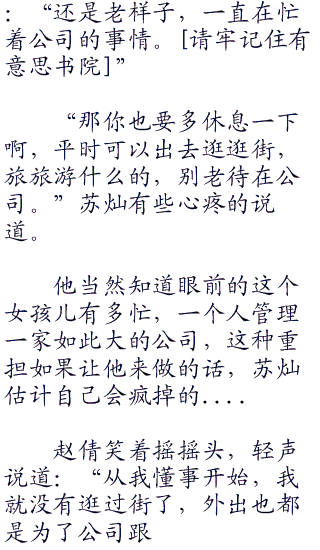 ：“还是老样子，一直在忙
着公司的事情。[请牢记住有
意思书院]”
“那你也要多休息一下
啊，平时可以出去逛逛街，
旅旅游什么的，别老待在公
司。”苏灿有些心疼的说
道。
他当然知道眼前的这个
女孩儿有多忙，一个人管理
一家如此大的公司，这种重
担如果让他来做的话，苏灿
估计自己会疯掉的....
赵倩笑着摇摇头，轻声
说道：“从我懂事开始，我
就没有逛过街了，外出也都
是为了公司跟